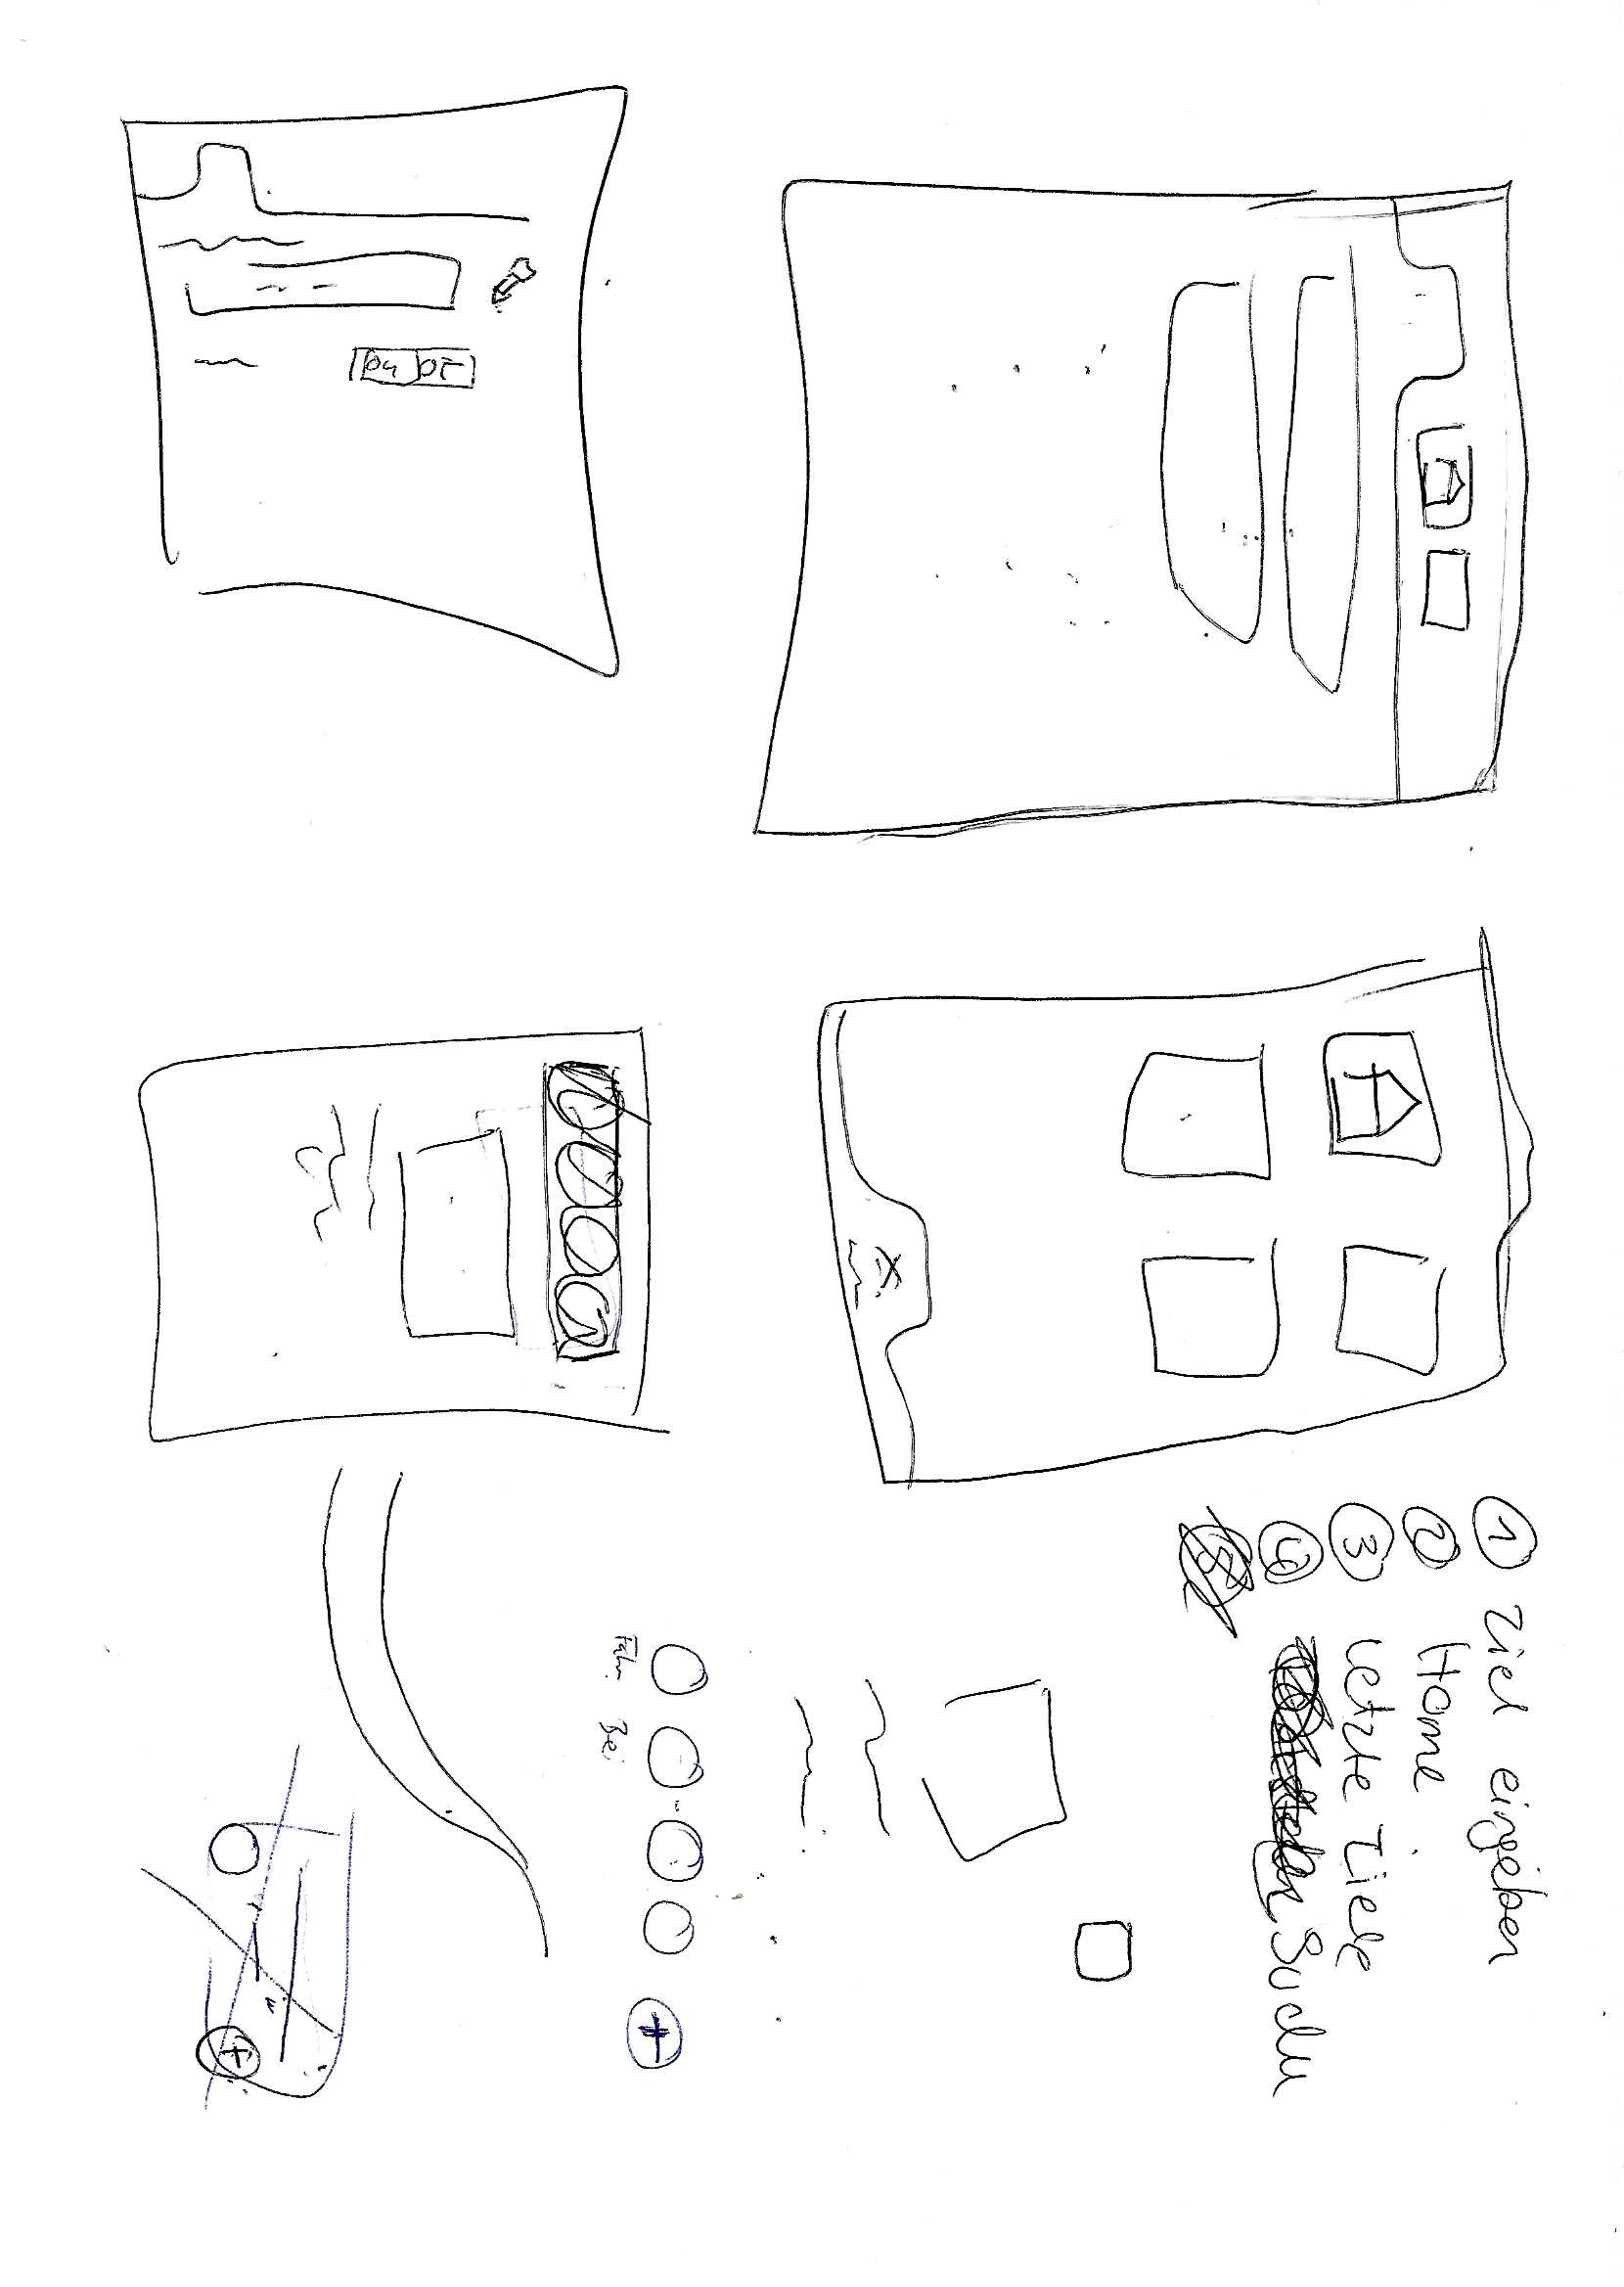 1 Ziel eingeben
2 Home
3 Letzte Ziele
4 Suche
5
Fahr. Bei